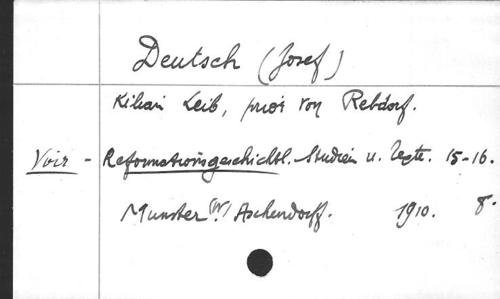 Deutsch (Josef)
Kilian Leib, prior von Rebdorf.
Voir - Reformationsgeschichtl. Studien u. Texte. 15-16.
Munster (W) Aschendorff. 1910. 8.